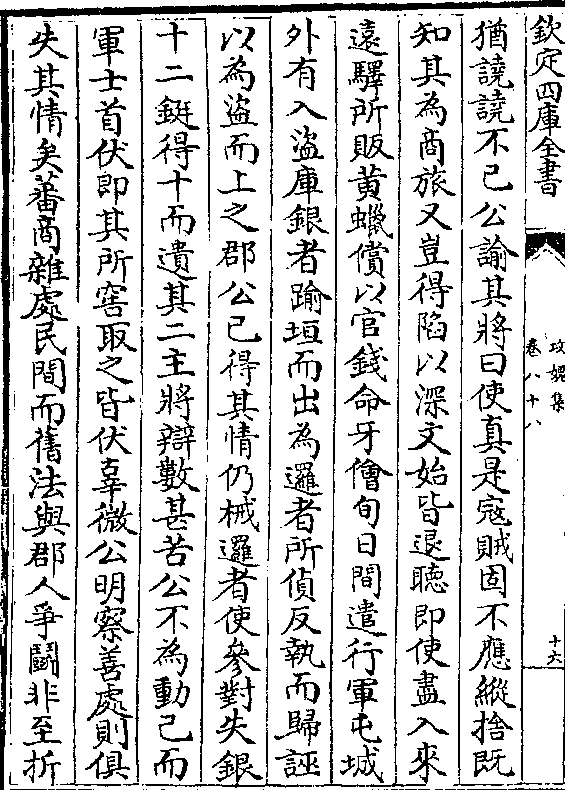 欽定四庫全書
攻媿集
卷八十八
十六
猶譊譊不已公諭其將曰使真是寇賊固不應縱捨既
知其為商旅又豈得陷以深文始皆退聽即使盡入來
遠驛所販黃蠟償以官錢命牙儈旬日間遣行軍屯城
外有入盜庫銀者踰垣而出為邏者所偵反執而歸誣
以為盜而上之郡公已得其情仍械邏者使參對失銀
十二鋌得十而遺其二主將辯數甚苦公不為動已而
軍士首伏即其所窖取之皆伏辜微公明察善處則俱
失其情矣蕃商雜處民間而舊法與郡人爭鬭非至折